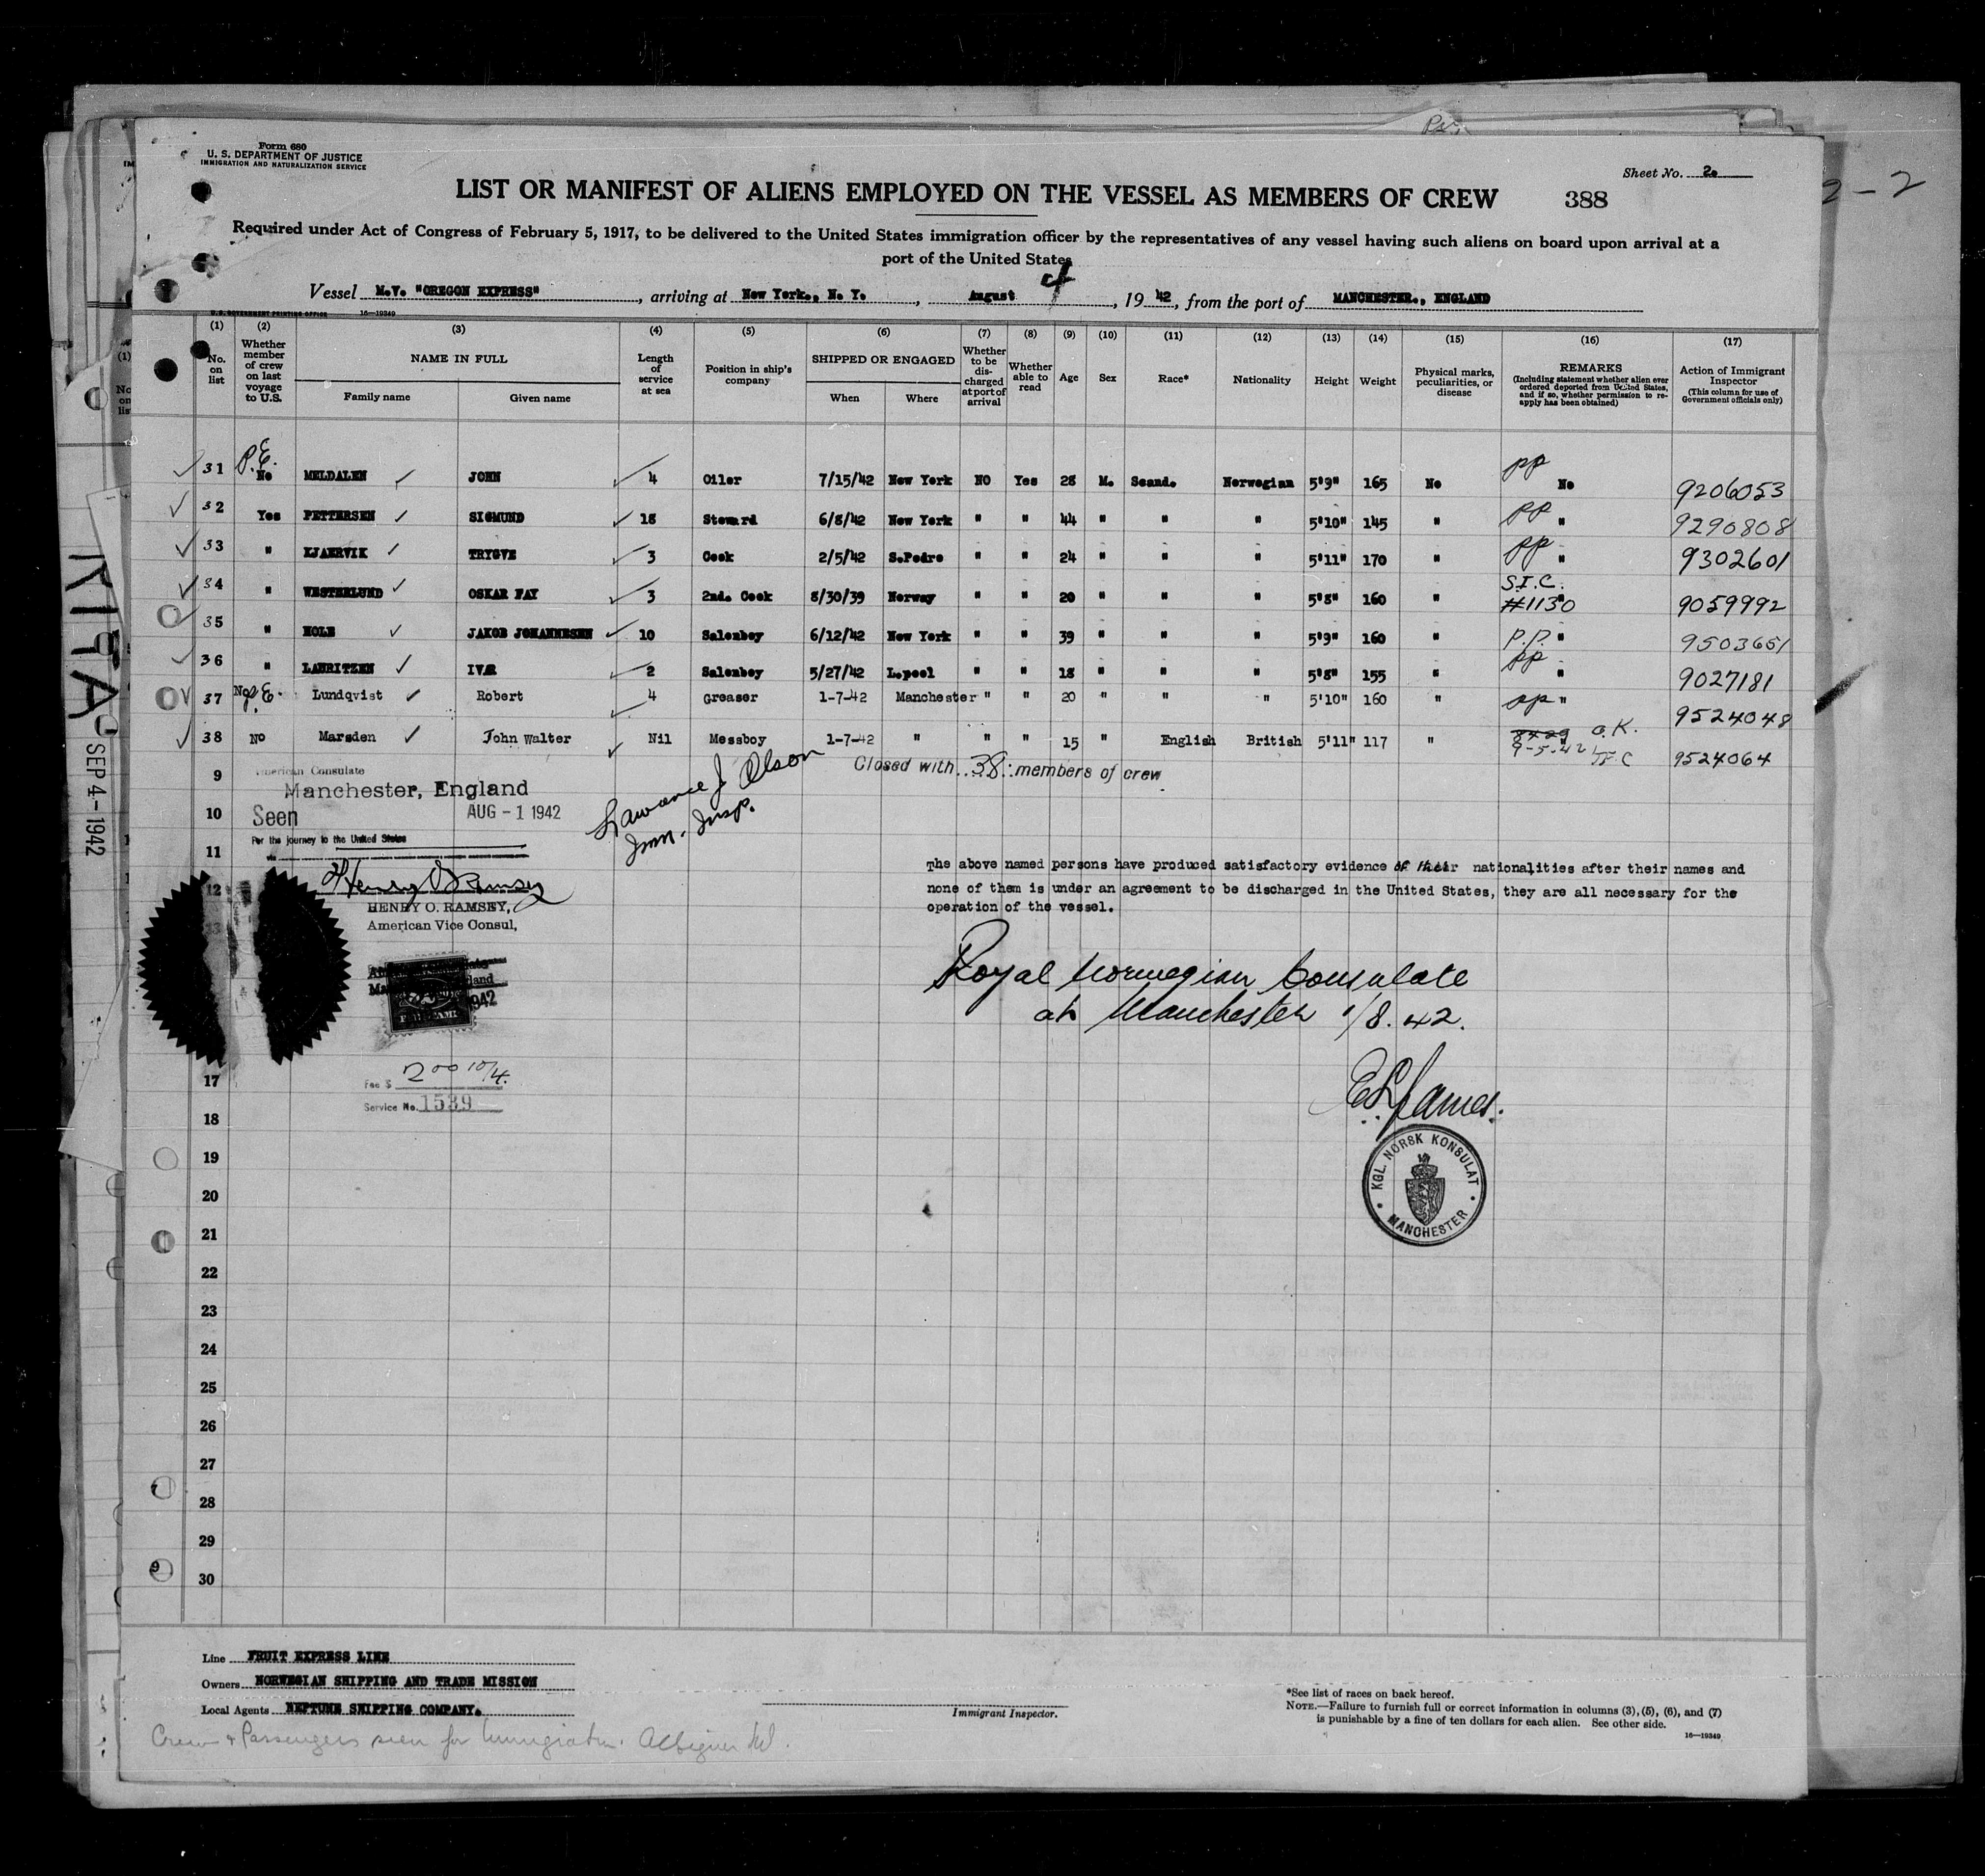 Form 680
U. S. DEPARTMENT OF JUSTICE
IMMIGRATION AND NATURALIZATION SERVICE
Sheet No. 2.
LIST OR MANIFEST OF ALIENS EMPLOYED ON THE VESSEL AS MEMBERS OF CREW 388
Required under Act of Congress of February 5, 1917, to be delivered to the United States immigration officer by the representatives of any vessel having such aliens on board upon arrival at a
port of the United States
Vessel M.V. "OREGON EXPRESS", arriving at New York., N. Y., August 4, 1942, from the port of MANCHESTER., ENGLAND
U.S. GOVERNMENT PRINTING OFFICE 16—19349
(1) (2) (3) (4) (5) (6) (7) (8) (9) (10) (11) (12) (13) (14) (15) (16) (17)
No. on list
Whether member of crew on last voyage to U.S.
NAME IN FULL
Family name Given name
Length of service at sea
Position in ship's company
SHIPPED OR ENGAGED
When Where
Whether to be discharged at port of arrival
Whether able to read
Age Sex Race* Nationality Height Weight
Physical marks, peculiarities, or disease
REMARKS
(Including statement whether alien ever ordered deported from United States, and if so, whether permission to reapply has been obtained)
Action of Immigrant Inspector
(This column for use of Government officials only)
31 P.E. No MELDALEN JOHN 4 Oiler 7/15/42 New York NO Yes 28 M. Scand. Norwegian 5'9" 165 No PP No 9206053
32 Yes PETTERSEN SIGMUND 18 Steward 6/8/42 New York " " 44 " " " 5'10" 145 " PP " 9290808
33 " KJAERVIK TRYGVE 3 Cook 2/5/42 S.Pedro " " 24 " " " 5'11" 170 " PP " 9302601
34 " WESTERLUND OSKAR FAY 3 2nd. Cook 8/30/39 Norway " " 20 " " " 5'8" 160 " S.I.C. #1130 " 9059992
35 " HOLE JAKOB JOHANNESEN 10 Salonboy 6/12/42 New York " " 39 " " " 5'9" 160 " P.P. " 9503651
36 " LAURITZEN IVAR 2 Salonboy 5/27/42 L.pool " " 18 " " " 5'8" 155 " PP " 9027181
37 No P.E. Lundqvist Robert 4 Greaser 1-7-42 Manchester " " 20 " " " 5'10" 160 " PP " 9524048
38 No Marsden John Walter Nil Messboy 1-7-42 " " " 15 " English British 5'11" 117 " O.K. 9-5-42 9524064
Closed with 38 members of crew
Lawrence J Olson
Imm. Insp.
9
10
11
12
13
American Consulate
Manchester, England
Seen AUG - 1 1942
For the journey to the United States
via
Henry O Ramsey
HENRY O. RAMSEY,
American Vice Consul,
The above named persons have produced satisfactory evidence of their nationalities after their names and
none of them is under an agreement to be discharged in the United States, they are all necessary for the
operation of the vessel.
Royal Norwegian Consulate
at Manchester 1/8.42.
E.L. James.
KGL. NORSK KONSULAT
MANCHESTER
1942
Fee $ 2 00 10/4.
Service No. 1539
17
18
19
20
21
22
23
24
25
26
27
28
29
30
RITA
SEP 4-1942
Line FRUIT EXPRESS LINE
Owners NORWEGIAN SHIPPING AND TRADE MISSION
Local Agents NEPTUNE SHIPPING COMPANY.
Immigrant Inspector.
*See list of races on back hereof.
NOTE.—Failure to furnish full or correct information in columns (3), (5), (6), and (7)
is punishable by a fine of ten dollars for each alien. See other side.
16—19349
Crew & Passengers seen for Immigration.
2-2